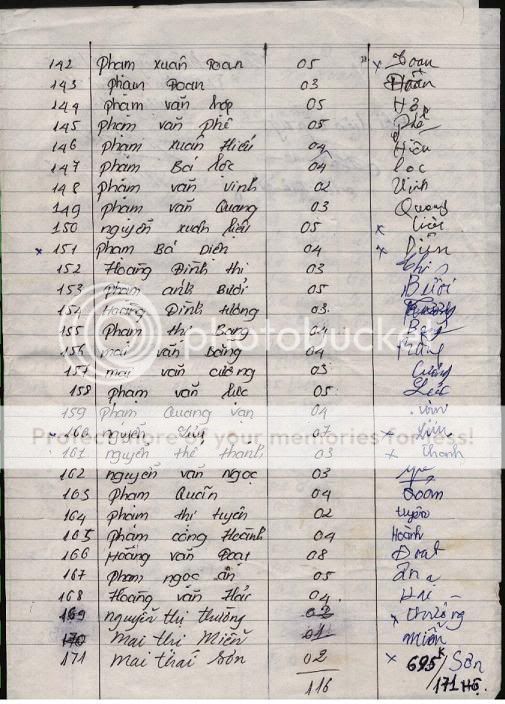 142 phạm xuân Doan 05 x Doan
143 phạm Doan 03 Doan
144 phạm văn hợp 05 Hợp
145 phạm văn phê 05 phê
146 phạm xuân Hiếu 04 Hiếu
147 phạm Bá lộc 04 lộc
148 phạm văn vinh 02 Vinh
149 phạm văn Quang 03 Quang
150 nguyễn xuân liễu 05 x
x 151 phạm Bá Diễn 04 x Diễn
152 Hoàng Đình thi 03
153 phạm anh Bưởi 05 Bưởi
154 Hoàng Đình tường 03
155 phạm thị Bang 04
156 mai văn 04
157 mai văn cường 03 Cường
158 phạm văn lực 05 Lực
159 phạm Quang vạn 04 vạn
160 nguyễn 07 x
161 nguyễn thế thanh 03 x thanh
162 nguyễn văn ngọc 03
163 phạm Quấn 04
164 phạm thị tuyên 02 tuyên
165 phạm công Hoành 04 Hoành
166 Hoàng văn Đoạt 08 Đoạt
167 phạm ngọc ấn 05 ấn
168 Hoàng văn 04
169 nguyễn thị thường 02 x thường
170 mai thị Miễn 01 miễn
171 mai thái Sơn 02 x Sơn
116 695K/171 Hộ
photobucket
Protect more of your memories for less!